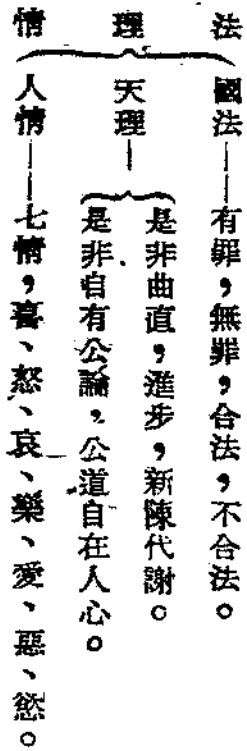 法 理 情
國法——有罪，無罪，合法，不合法。
天理—
是非曲直，進步，新陳代謝。
是非自有公論，公道自在人心。
人情——七情，喜、怒、哀、樂、愛、惡、慾。